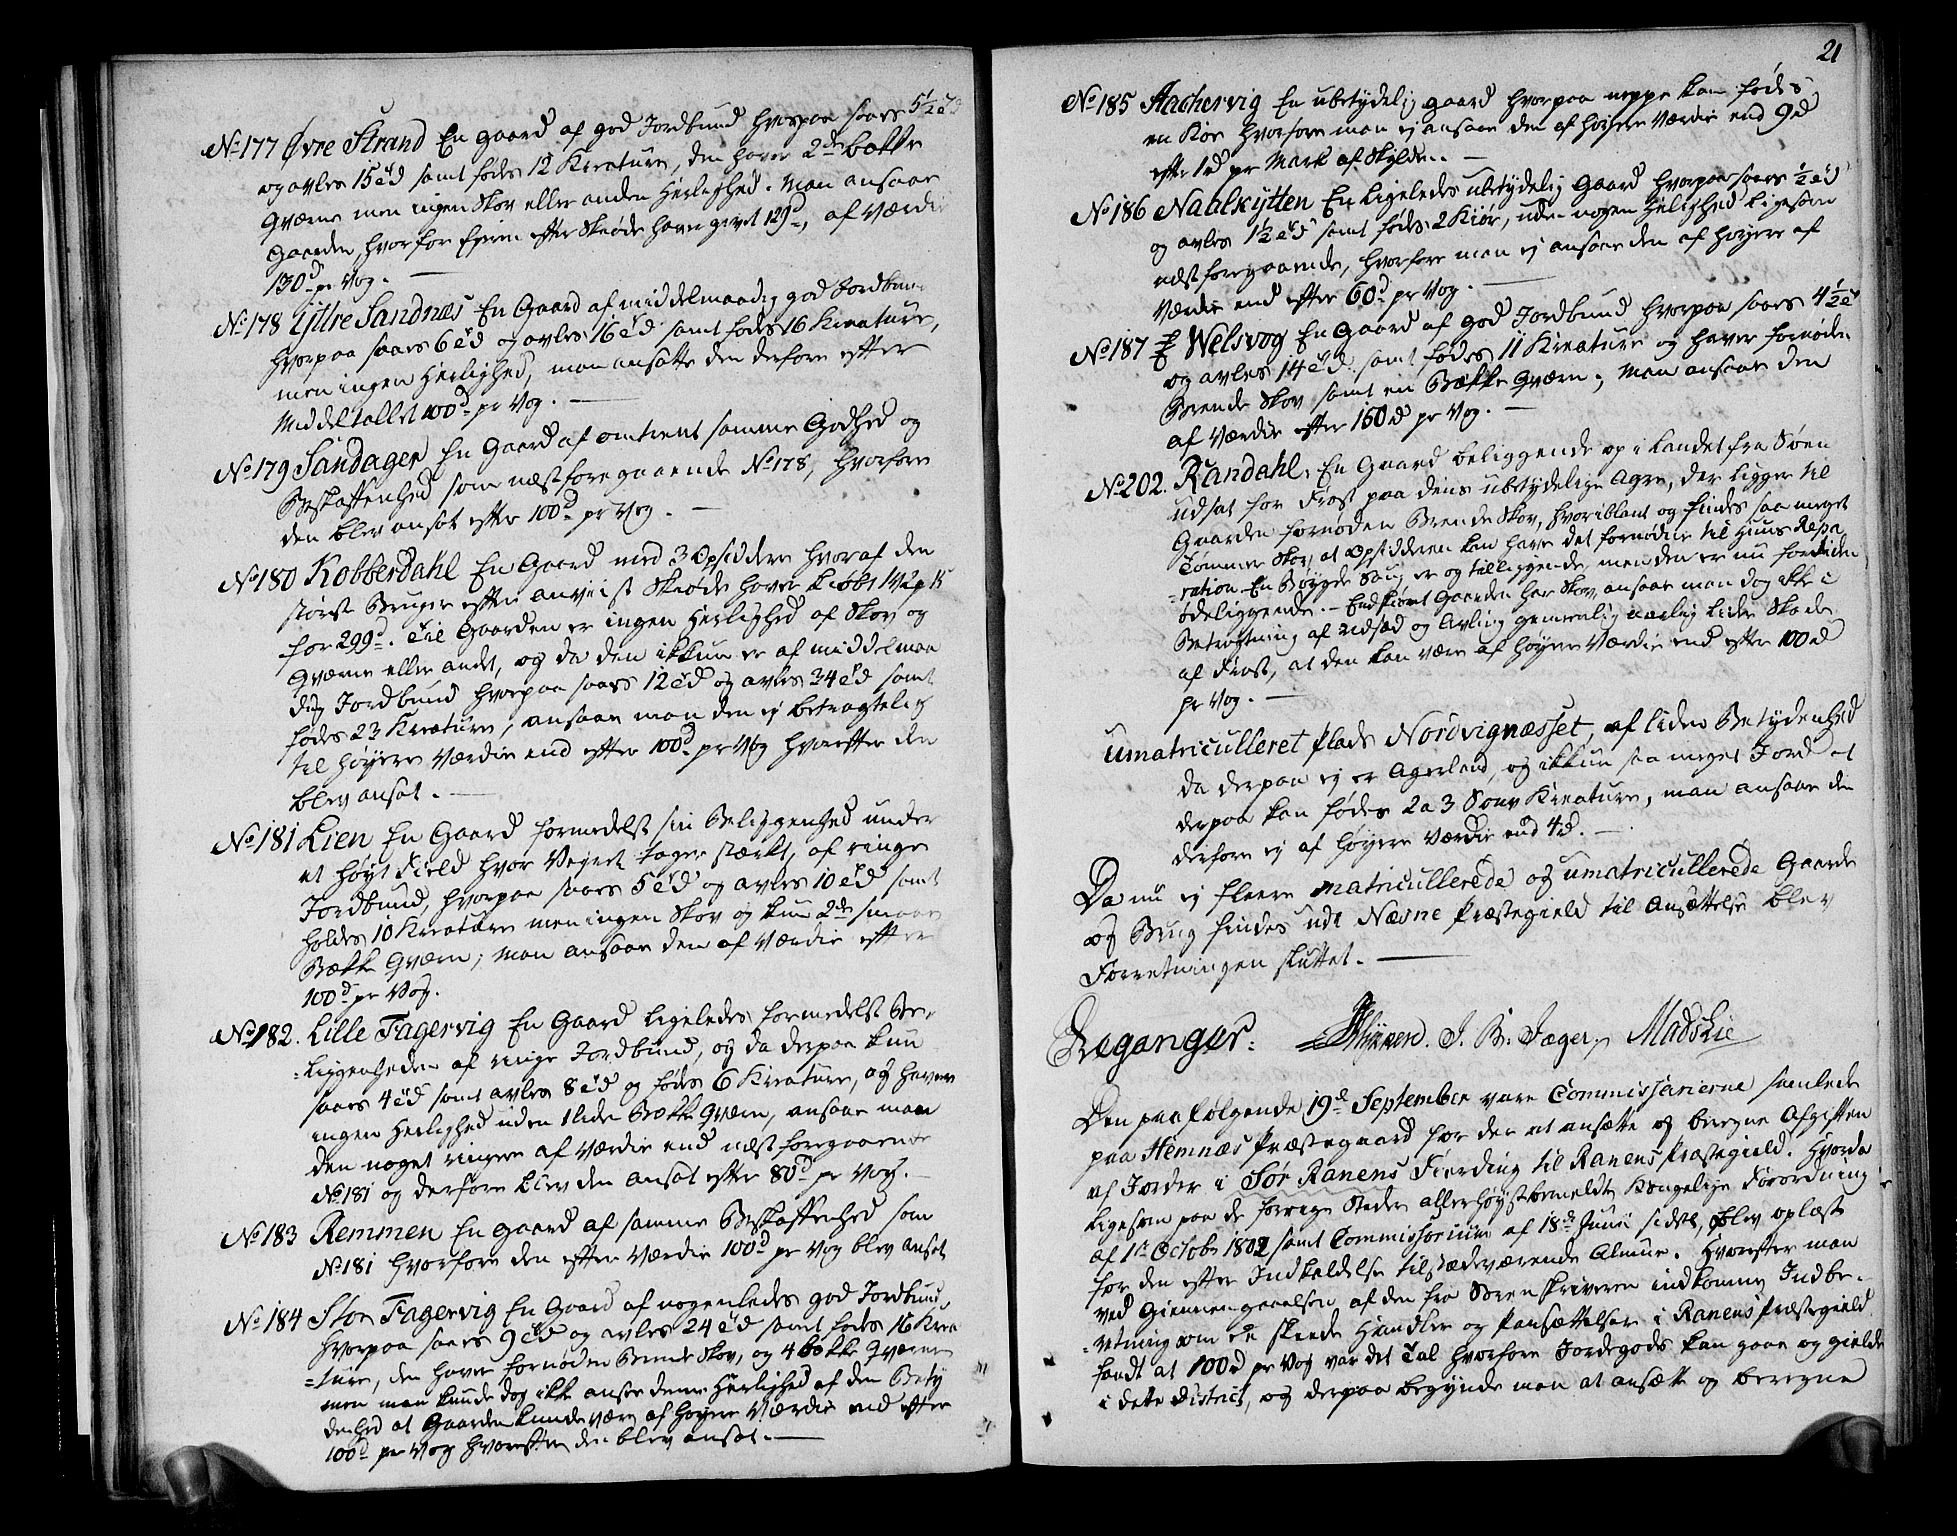 No 177 Øvre Strand En Gaard af god Jordbund hvorpaa saaes 5½ td
og avles 15 td samt fødes 12 Kreature, den haver 2de bække
Qværne men ingen Skov eller anden Herlighed. Man ansaae
Gaarden, hvorfor Eyeren efter Skiøde haver givet 129d, af Værdie
130d pr Vog. —
No 178 Yttre Sandnæs En Gaard af middelmaadig god Jordbund
hvorpaa saaes 6 td og avles 16 td samt fødes 16 Kreature,
men ingen Herlighed, man ansatte den derfore efter
Middeltallet 100d pr Vog. —
No 179 Sandager En Gaard af omtrent samme Godhed og
Beskaffenhed som næstforegaaende No 178, hvorfore
den blev ansat efter 100d pr Vog. —
No 180 Kobberdahl En Gaard med 3 Opsiddere hvoraf den
største Bruger efter anviist Skiøde haver kiøbt 1V 2p
for 299d. Til Gaarden er ingen Herlighed af Skov og
Qværne eller andet, og da den ikkun er af middelmaa
dig Jordbund hvorpaa saaes 12 td og avles 34 td samt
fødes 23 Kreature, ansaae man den ej betragtelig
til høyere Værdie end efter 100d pr Vog hvorefter den
blev ansat. —
No 181 Lien En Gaard formedelst sin Beliggenhed under
et høyt Field hvor Veyret tager stærkt, af ringe
Jordbund, hvorpaa saaes 5 td og avles 10 td samt
holdes 10 Kreature men ingen Skov og kun 2de smaae
Bække Qværn; man ansaae den af Værdie efter
100d pr Vog.
No 182. Lille Fagervig En Gaard ligeledes formedelst Be-
-liggenheden af ringe Jordbund, og da derpaa kun
saaes 4 td samt avles 8 td og fødes 6 Kreature, og haver
ingen Herlighed uden 1 liden Bække Qværn, ansaae man
den noget ringere af Værdie end næstforegaaende
No 181 og derfore blev den ansat efter 80d pr Vog. —
No 183 Remmen En Gaard af samme Beskaffenhed som
No 181 hvorfore den efter Værdie 100d pr Vog blev ansat
No 184 Stor Fagervig En Gaard af nogenledes god Jordbund
hvorpaa saaes 9 td og avles 24 td samt fødes 16 Krea
-ture, den haver fornøden Brende Skov, og 4 bække Qværne
men man kunde dog ikke ansee denne Herlighed af den Bety
denhed at Gaarden kunde være af høyere Værdie end efter
100d pr Vog hvorefter den blev ansat. —
21
No 185 Aachervig En ubetydelig Gaard hvorpaa neppe kan fødes
en Koe hvorfore man ej ansaae den af høyere Værdie end 9d
efter 1d pr Mark af Skylden. —
No 186 Naalkytten En ligeledes ubetydelig Gaard hvorpaa saaes ½ td
og avles 1½ td samt fødes 2 Kiør, uden nogen Herlighed ligesom
næstforegaaende, hvorfore man ej ansaae den af høyere af
Værdie end efter 60d pr Vog. —
No 187 Welsvog En Gaard af god Jordbund hvorpaa saaes 4½ td
og avles 14 td samt fødes 11 Kreature og haver fornøden
Brende Skov samt en Bække Qværn; Man ansaae den
af Værdie efter 160d pr Vog. —
No 202. Randahl, En Gaard beliggende op i Landet fra Søen
udsat for Frost paa dens ubetydelige Agre, der ligger til
Gaarden fornøden Brende Skov, hvoriblant og findes saa meget
Tømmer Skov, at Opsidderen kan have det fornødne til Huus Repa
-ration. En Bøygde Saug er og tilliggende, men den er nu for tiden
ødeliggende. — Endskiønt Gaarden har Skov, ansaae man dog ikke i
Betragtning af Udsæd og Avling gemenlig aarlig lider Skade
af Frost, at den kan være af høyere Værdie end efter 100d
pr Vog. —
Umatriculleret Plads Nordvignæsset, af liden Betydenhed
da derpaa ej er Agerland, og ikkun saa meget Jord at
derpaa kan fødes 2 a 3 Sour Kreature, man ansaae den
derfore ej af høyere Værdie end 4d. —
Da nu ej fleere matricullerede og umatricullerede Gaarde
og Brug findes udi Næsne Præstegield til Ansættelse blev
Forretningen sluttet. —
J. B. Jæger, Mads Lie
Den paafølgende 19d September vare Commissairerne samlede
paa Hemnæs Præstegaard for der at ansætte og beregne Afgiften
af Jorder i Sør Ranens Fierding til Ranens Præstegield. Hvorda
ligesom paa de forrige Steder allerhøystbemeldte Kongelige Forordning
af 1te Octobr 1802 samt Commissorium af 18d Junii sidst, blev oplæst
for den efter Indkaldelse tilstædeværende Almue. Hvorefter man
ved Giennemgaaelsen af den fra Sorenskriveren indkomne Indbe-
-retning om de skeede Handler og Pansættelser i Ranens Præstegield
fandt at 100d pr Vog var det Tal hvorfore Jordegods kan gaae og gielde
i dette District, og derpaa begynde man at ansætte og beregne